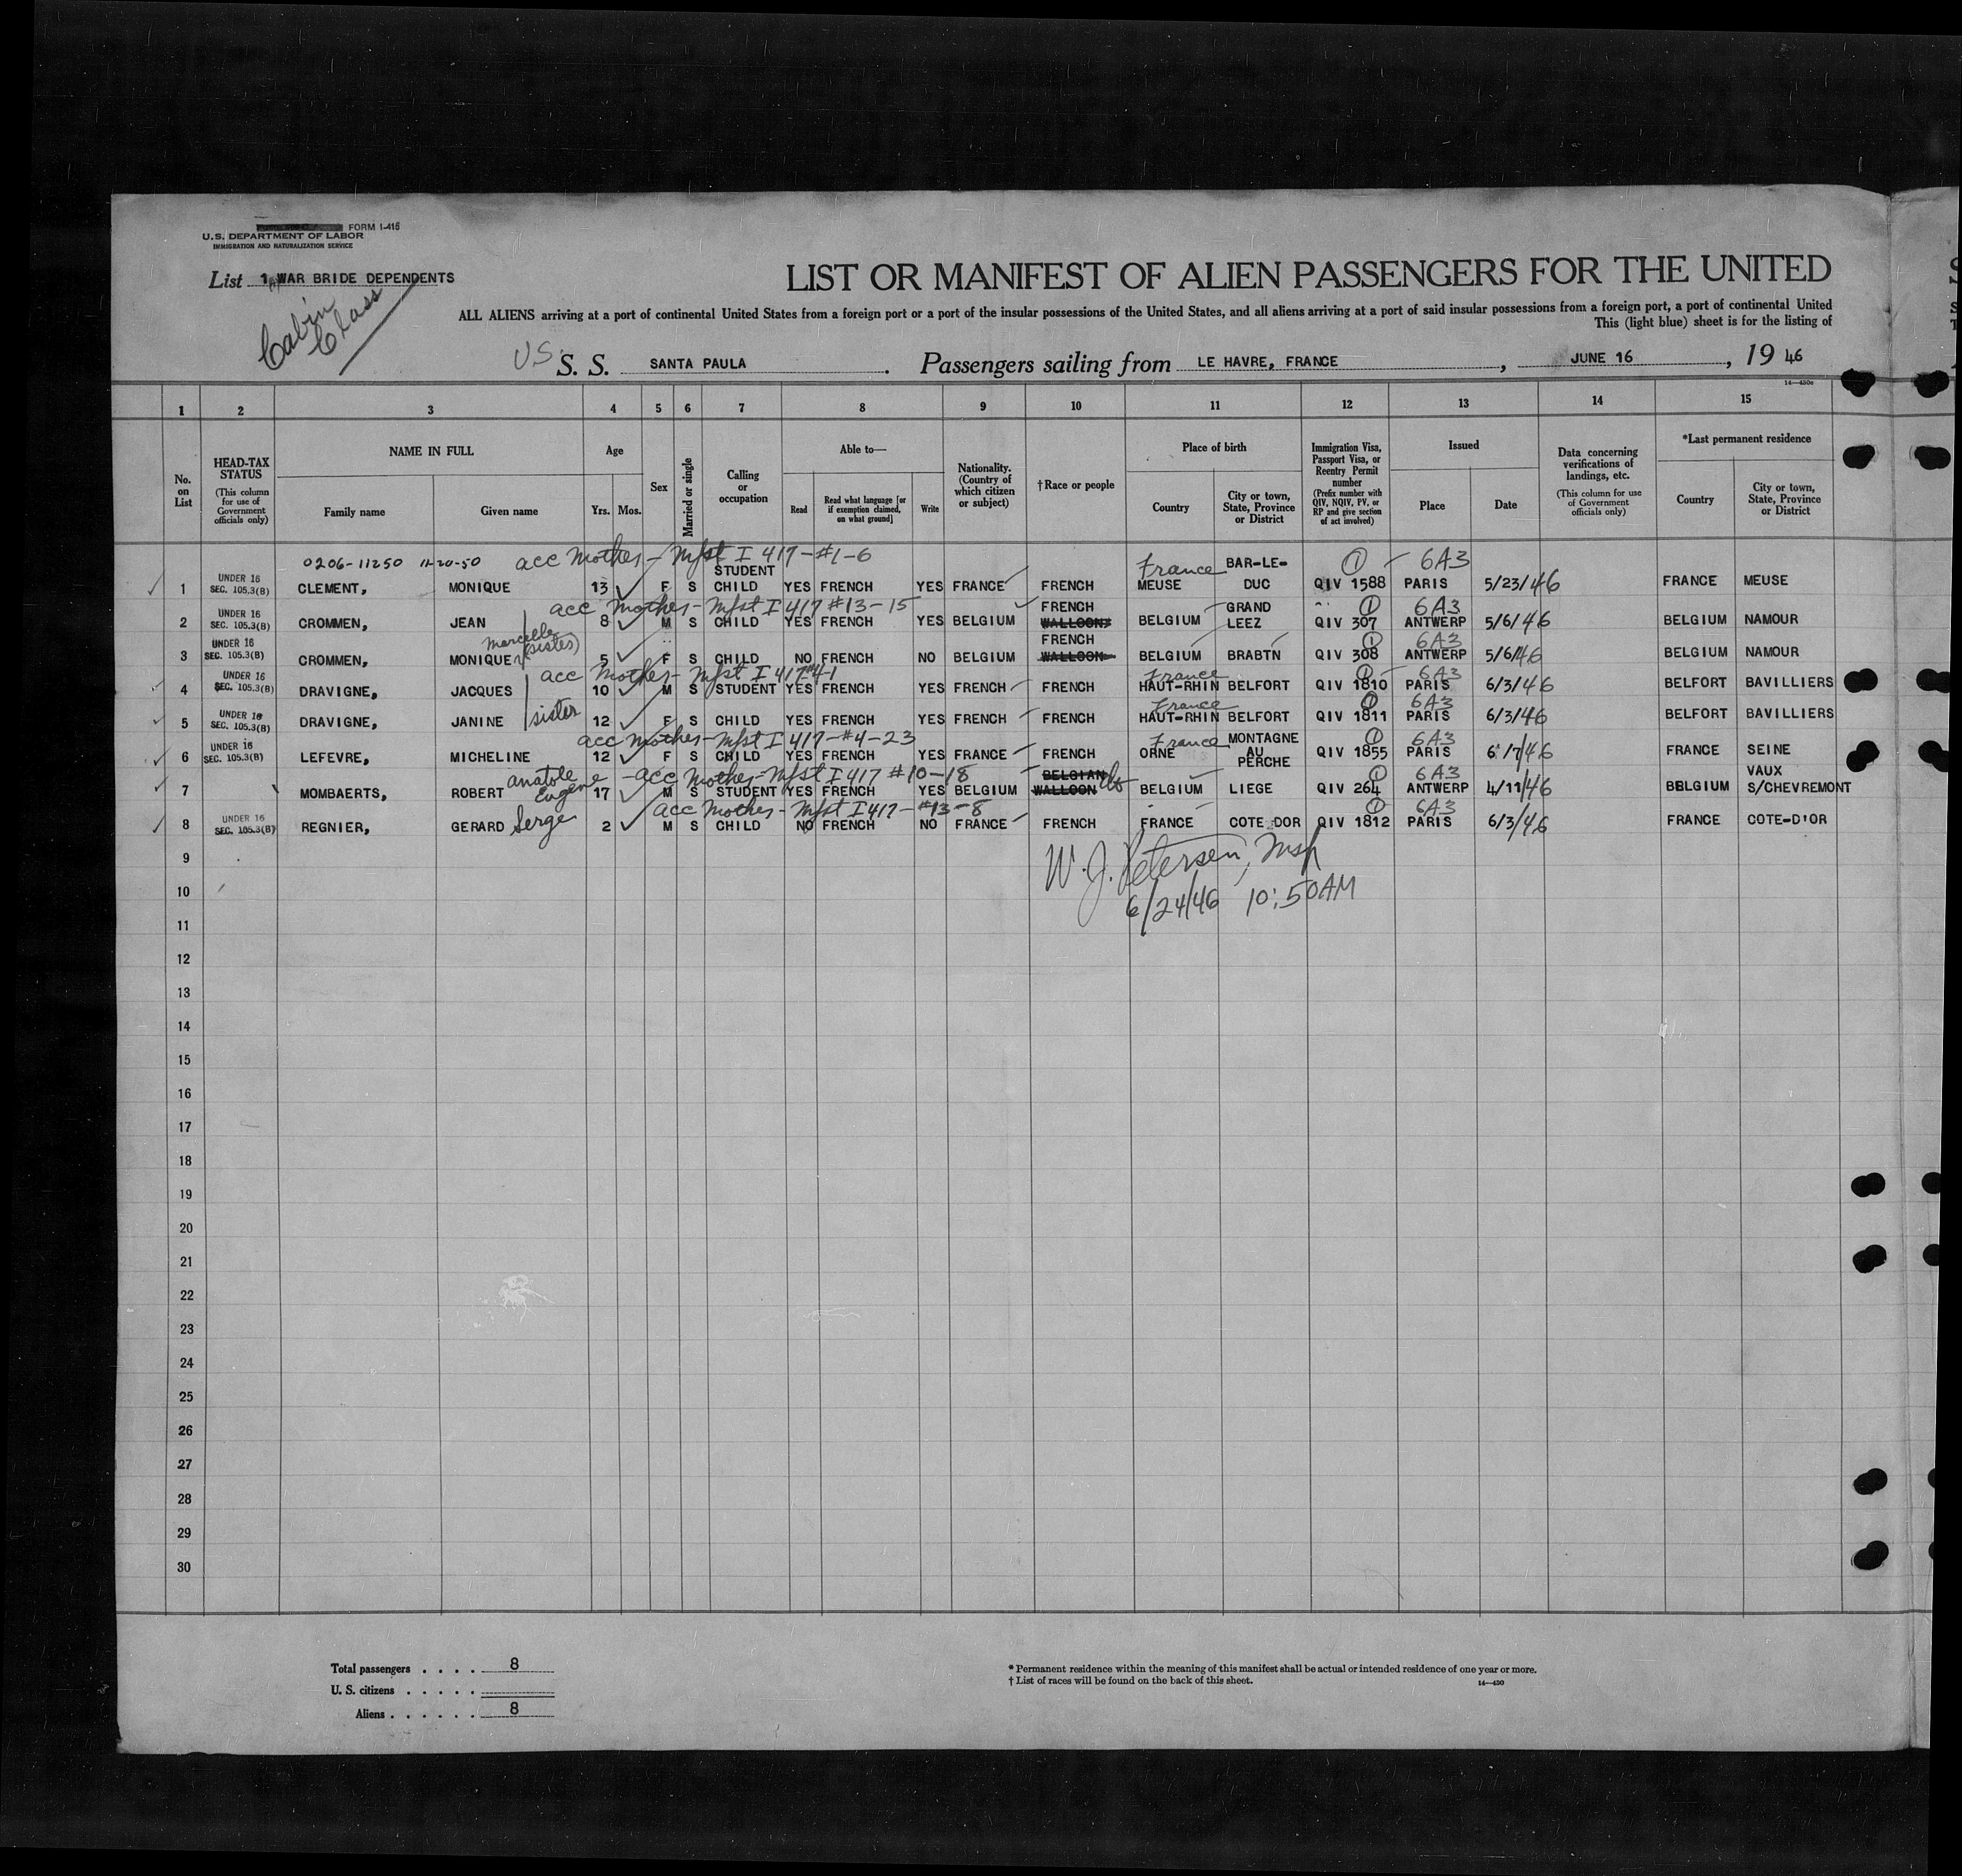 FORM I-415
U.S. DEPARTMENT OF LABOR
IMMIGRATION AND NATURALIZATION SERVICE
List 1 WAR BRIDE DEPENDENTS
Cabin Class
LIST OR MANIFEST OF ALIEN PASSENGERS FOR THE UNITED
ALL ALIENS arriving at a port of continental United States from a foreign port or a port of the insular possessions of the United States, and all aliens arriving at a port of said insular possessions from a foreign port, a port of continental United
This (light blue) sheet is for the listing of
U.S. S. S. SANTA PAULA. Passengers sailing from LE HAVRE, FRANCE, JUNE 16, 19 46
14—430a
1 2 3 4 5 6 7 8 9 10 11 12 13 14 15
No. on List
HEAD-TAX STATUS (This column for use of Government officials only)
NAME IN FULL Family name Given name
Age Yrs. Mos.
Sex
Married or single
Calling or occupation
Able to— Read Read what language [or if exemption claimed, on what ground] Write
Nationality. (Country of which citizen or subject)
†Race or people
Place of birth Country City or town, State, Province or District
Immigration Visa, Passport Visa, or Reentry Permit number (Prefix number with QIV, NQIV, PV, or RP and give section of act involved)
Issued Place Date
Data concerning verifications of landings, etc. (This column for use of Government officials only)
*Last permanent residence Country City or town, State, Province or District
0206-11250 11-20-50 acc Mother - Mfst I 417 - #1-6 STUDENT France BAR-LE- 1 6A3
1 UNDER 16 SEC. 105.3(B) CLEMENT, MONIQUE 13 F S CHILD YES FRENCH YES FRANCE FRENCH MEUSE DUC QIV 1588 PARIS 5/23/46 FRANCE MEUSE
acc Mother - Mfst I 417 #13-15 FRENCH GRAND 1 6A3
2 UNDER 16 SEC. 105.3(B) CROMMEN, JEAN 8 M S CHILD YES FRENCH YES BELGIUM WALLOON BELGIUM LEEZ QIV 307 ANTWERP 5/6/46 BELGIUM NAMOUR
Marcelle (sister) FRENCH 1 6A3
3 UNDER 16 SEC. 105.3(B) CROMMEN, MONIQUE 5 F S CHILD NO FRENCH NO BELGIUM WALLOON BELGIUM BRABTN QIV 308 ANTWERP 5/6/46 BELGIUM NAMOUR
acc Mother - Mfst I 417 #4-1 France 1 6A3
4 UNDER 16 SEC. 105.3(B) DRAVIGNE, JACQUES 10 M S STUDENT YES FRENCH YES FRENCH FRENCH HAUT-RHIN BELFORT QIV 1810 PARIS 6/3/46 BELFORT BAVILLIERS
sister France 1 6A3
5 UNDER 16 SEC. 105.3(B) DRAVIGNE, JANINE 12 F S CHILD YES FRENCH YES FRENCH FRENCH HAUT-RHIN BELFORT QIV 1811 PARIS 6/3/46 BELFORT BAVILLIERS
acc Mother - Mfst I 417 - #4-23 France MONTAGNE 1 6A3
6 UNDER 16 SEC. 105.3(B) LEFEVRE, MICHELINE 12 F S CHILD YES FRENCH YES FRANCE FRENCH ORNE AU PERCHE QIV 1855 PARIS 6/7/46 FRANCE SEINE
Anatole Eugene - acc Mother - Mfst I 417 #10-18 BELGIAN 1 6A3 VAUX
7 MOMBAERTS, ROBERT 17 M S STUDENT YES FRENCH YES BELGIUM WALLOON BELGIUM LIEGE QIV 264 ANTWERP 4/11/46 BBLGIUM S/CHEVREMONT
acc Mother - Mfst I 417 - #13-8 1 6A3
8 UNDER 16 SEC. 105.3(B) REGNIER, GERARD Serge 2 M S CHILD NO FRENCH NO FRANCE FRENCH FRANCE COTE DOR QIV 1812 PARIS 6/3/46 FRANCE COTE-D'OR
W. J. Petersen, Insp
6/24/46 10:50AM
9
10
11
12
13
14
15
16
17
18
19
20
21
22
23
24
25
26
27
28
29
30
Total passengers . . . . 8
U. S. citizens . . . . .
Aliens . . . . . . 8
* Permanent residence within the meaning of this manifest shall be actual or intended residence of one year or more.
† List of races will be found on the back of this sheet. 14—430